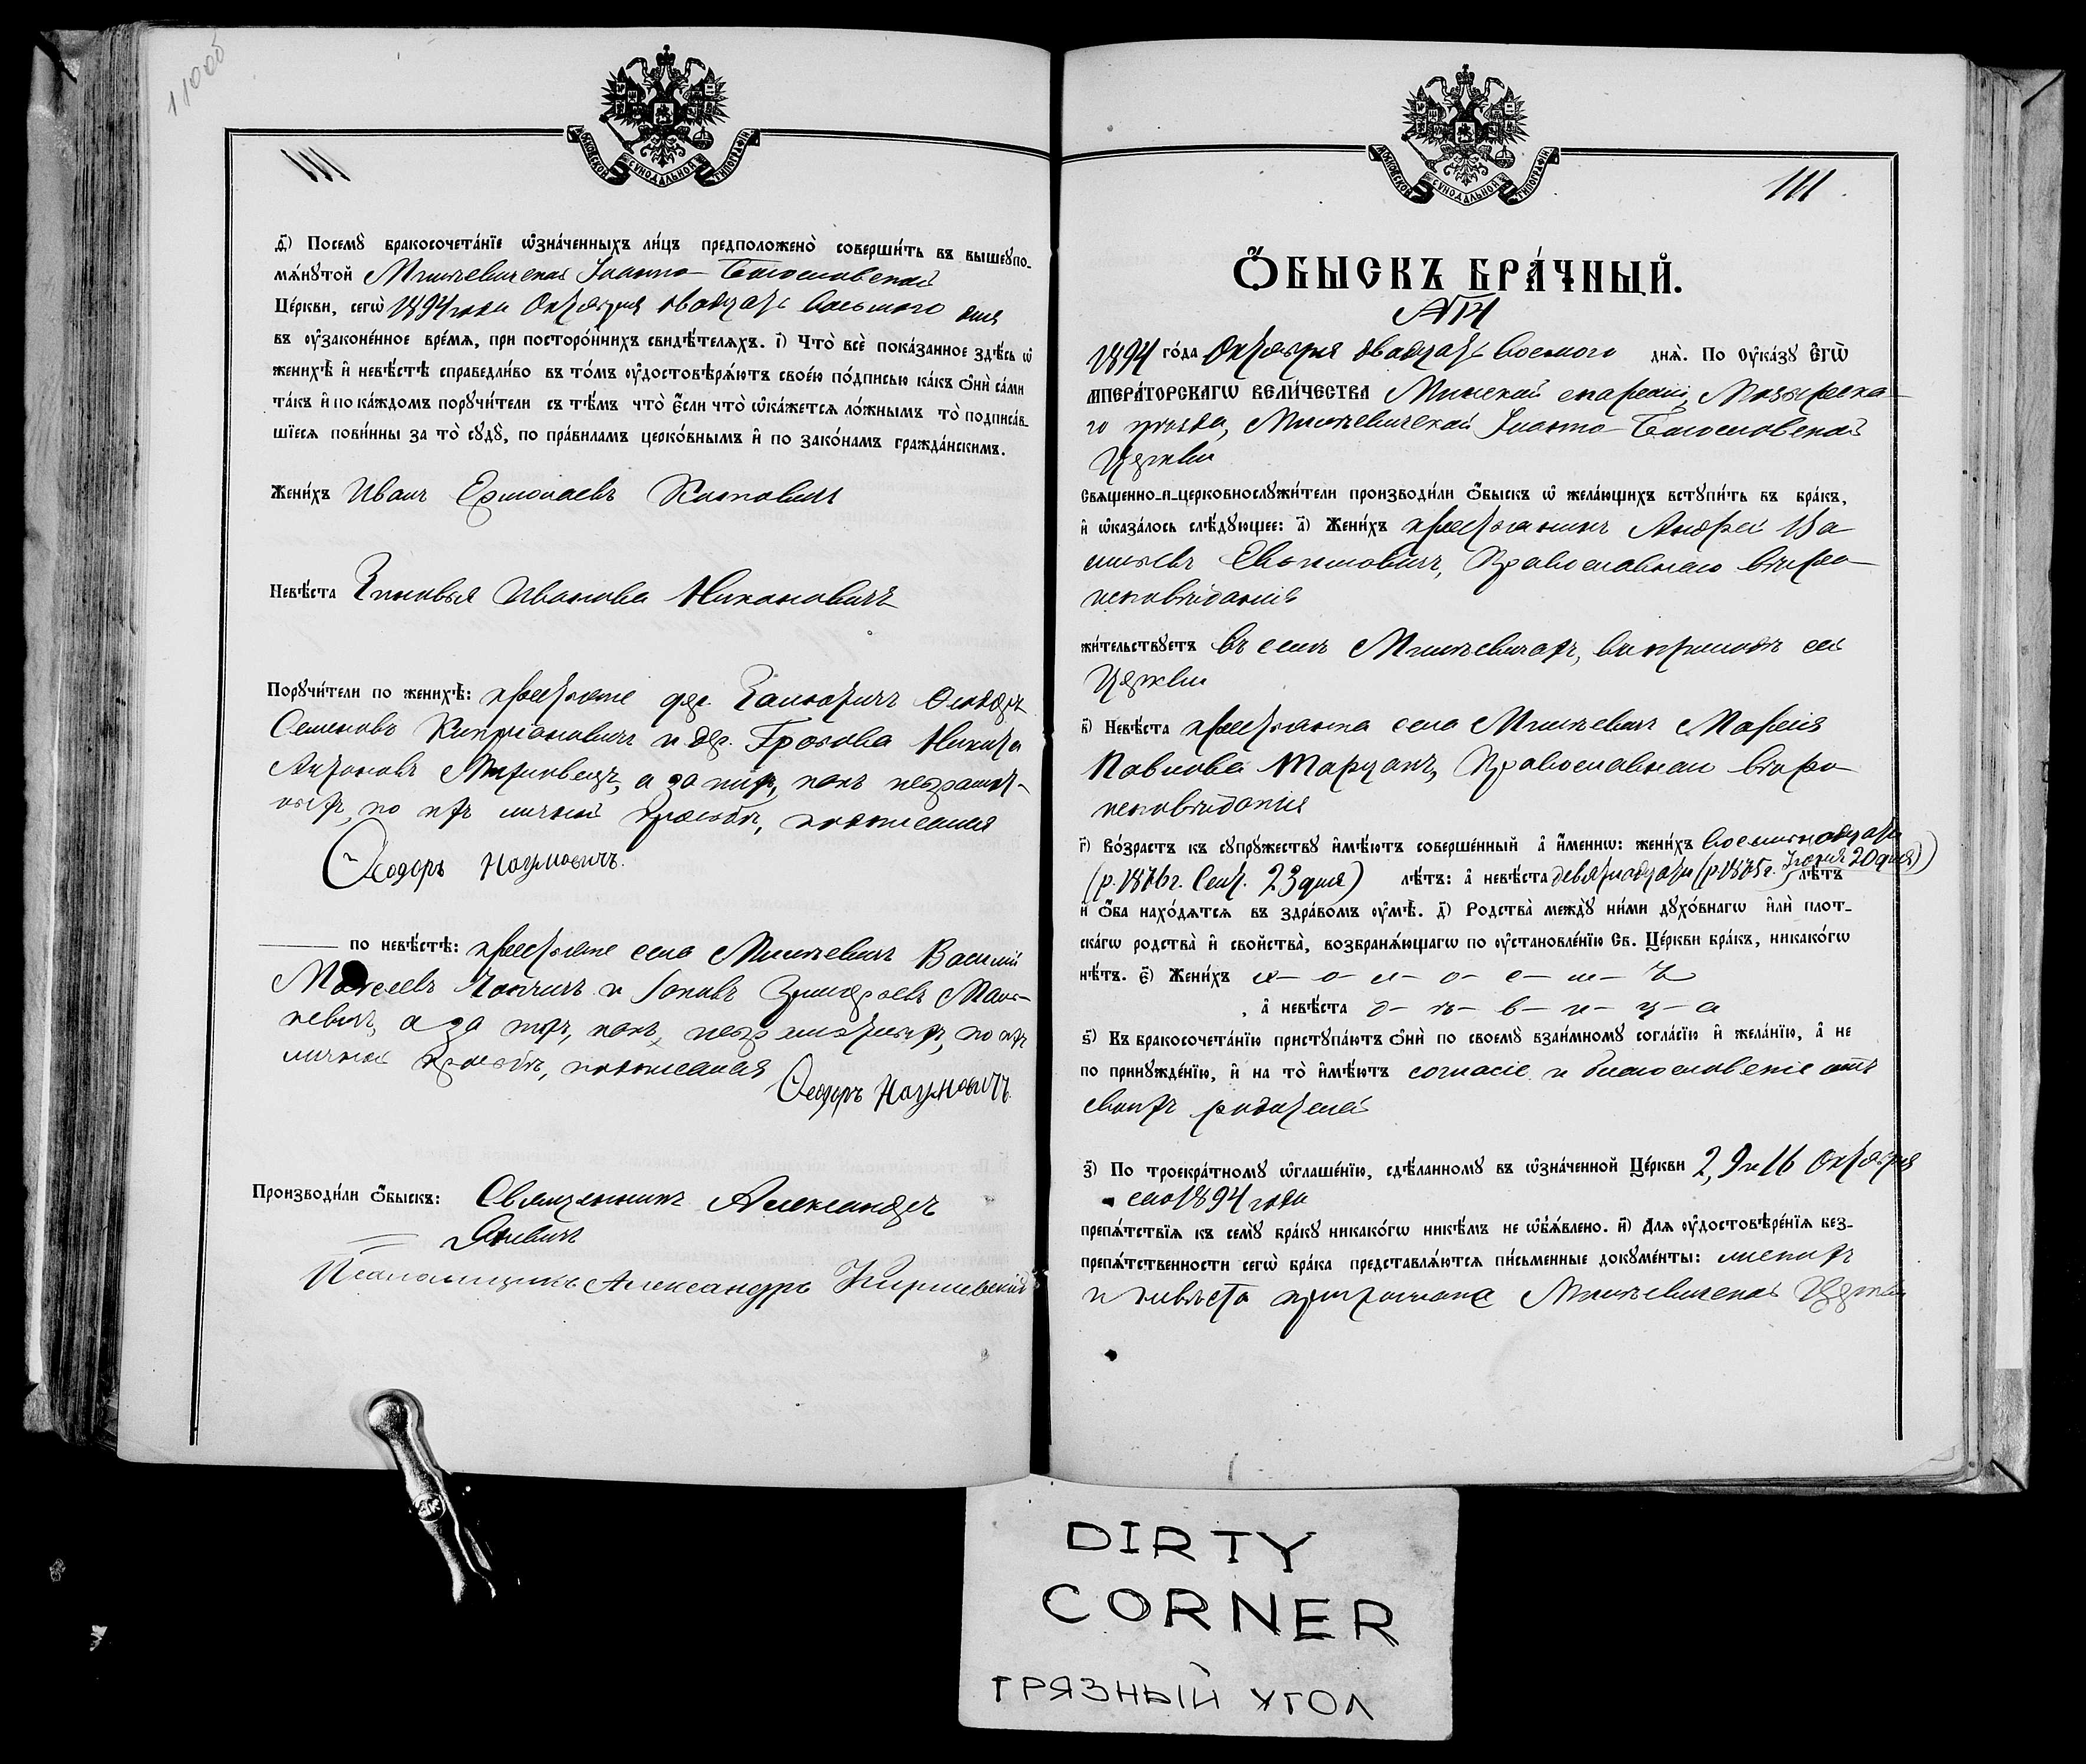 110об
111
МОСКОВСКОЙ СѴНОДАЛЬНОЙ ТИПОГРАФІИ
д҃) Посемꙋ̀ бракосочета́нїе ѡ҆зна́ченныхъ ли́цъ предположено̀ соверши́ть въ вышеꙋпо-
мѧ́нꙋтой Іоанно-Богословской
Це́ркви, сегѡ̀ 1894 года Октября двадцать восьмого дня
въ ᲂу҆законе́нное вре́мѧ, при посторо́ннихъ свидѣ́телѧхъ. і҃) Что̀ всѐ пока́занное здѣ́сь ѡ҆
женихѣ̀ и҆ невѣ́стѣ справедли́во въ то́мъ ᲂу҆достовѣрѧ́ютъ свое́ю по́дписью ка́къ ѻ҆нѝ са́ми
та́къ и҆ по ка́ждомъ порꙋчи́тели съ тѣ́мъ что̀ є҆́сли что̀ ѡ҆ка́жетсѧ ло́жнымъ то̀ подписа́в-
шїесѧ пови́нны за то̀ сꙋдꙋ̀, по пра́виламъ церко́внымъ и҆ по зако́намъ гражда́нскимъ.
Жени́хъ Иванъ Ермолаевъ
Невѣ́ста Зиновья Иванова Никоновичъ
Порꙋчи́тели по женихѣ̀: крестьяне дер.
Семеновъ Кипріановичъ и дер. Грабова Никита
Антоновъ а за нихъ, какъ неграмот-
ныхъ, по ихъ личной просьбѣ, подписался
Ѳеодоръ Наумовичъ.
по невѣ́стѣ: крестьяне села Василій
Моисеевъ и Іаковъ
а за нихъ, какъ неграмотныхъ, по ихъ
личной просьбѣ, подписался
Ѳеодоръ Наумовичъ.
Производи́ли ѻ҆́быскъ: Священникъ Александръ
Яневичъ
Псаломщикъ Александръ
111
МОСКОВСКОЙ СѴНОДАЛЬНОЙ ТИПОГРАФІИ
Ѻ҆́БЫСКЪ БРА́ЧНЫЙ.
№ 14
1894 го́да Октября двадцать восьмого днѧ̀. По ᲂу҆ка́зꙋ є҆гѡ̀
мпера́торскагѡ вели́чества Минской епархіи, Мозырска-
го уѣзда, Іоанно-Богословской
Церкви
Свѧще́нно-и-церковнослꙋжи́тели производи́ли ѻ҆́быскъ ѡ҆ жела́ющихъ встꙋпи́ть въ бра́къ,
и҆ ѡ҆каза́лось слѣ́дꙋющее: а҃) Жени́хъ крестьянинъ Андрей Ва-
сильевъ Православнаго вѣро-
исповѣданія
жи́тельствꙋетъ въ селѣ въ приходѣ сей
Церкви
в҃) Невѣ́ста крестьянка села Марѳія
Павлова Православнаго вѣро-
исповѣданія
г҃) Во́зрастъ къ сꙋпрꙋ́жествꙋ и҆мѣ́ютъ соверше́нный а҆ и҆́меннѡ: жени́хъ восемнадцати
(р. 1876 г. Сент. 23 дня) лѣ́тъ: а҆ невѣ́ста девятнадцати (р. 1875 г. Іюня 20 дня) лѣ́тъ
и҆ ѻ҆́ба нахо́дѧтсѧ въ здра́вомъ ᲂу҆мѣ̀. д҃) Родства̀ междꙋ̀ ни́ми дꙋхо́внагѡ и҆лѝ плот-
ска́гѡ родства̀ и҆ свойства̀, возбранѧ́ющагѡ по ᲂу҆становле́нїю Св. Це́ркви бра́къ, никако́гѡ
нѣ́тъ. є҃) Жени́хъ х- о- л- о- с- т- ъ
а҆ невѣ́ста д- ѣ- в- и- ц- а
ѕ҃) Къ бракосочета́нїю пристꙋпа́ютъ ѻ҆нѝ по своемꙋ̀ взаи́мномꙋ согла́сїю и҆ жела́нїю, а҆ не
по принꙋжде́нїю, и҆ на то̀ и҆мѣ́ютъ согласіе и благословеніе отъ
своихъ родителей
з҃) По троекра́тномꙋ ѡ҆глаше́нїю, сдѣ́ланномꙋ въ ѡ҆зна́ченной Це́ркви 2, 9 и 16 Октября
сего 1894 года
препѧ́тствїѧ къ семꙋ̀ бра́кꙋ никако́гѡ никѣ́мъ не ѡ҆б̾ѧ́влено. и҃) Длѧ ᲂу҆достовѣре́нїѧ без-
препѧ́тственности сегѡ̀ бра́ка представлѧ́ютсѧ пи́сьменные докꙋме́нты: женихъ
и невѣста прихожане Церкви
DIRTY
CORNER
ГРЯЗНЫЙ УГОЛ